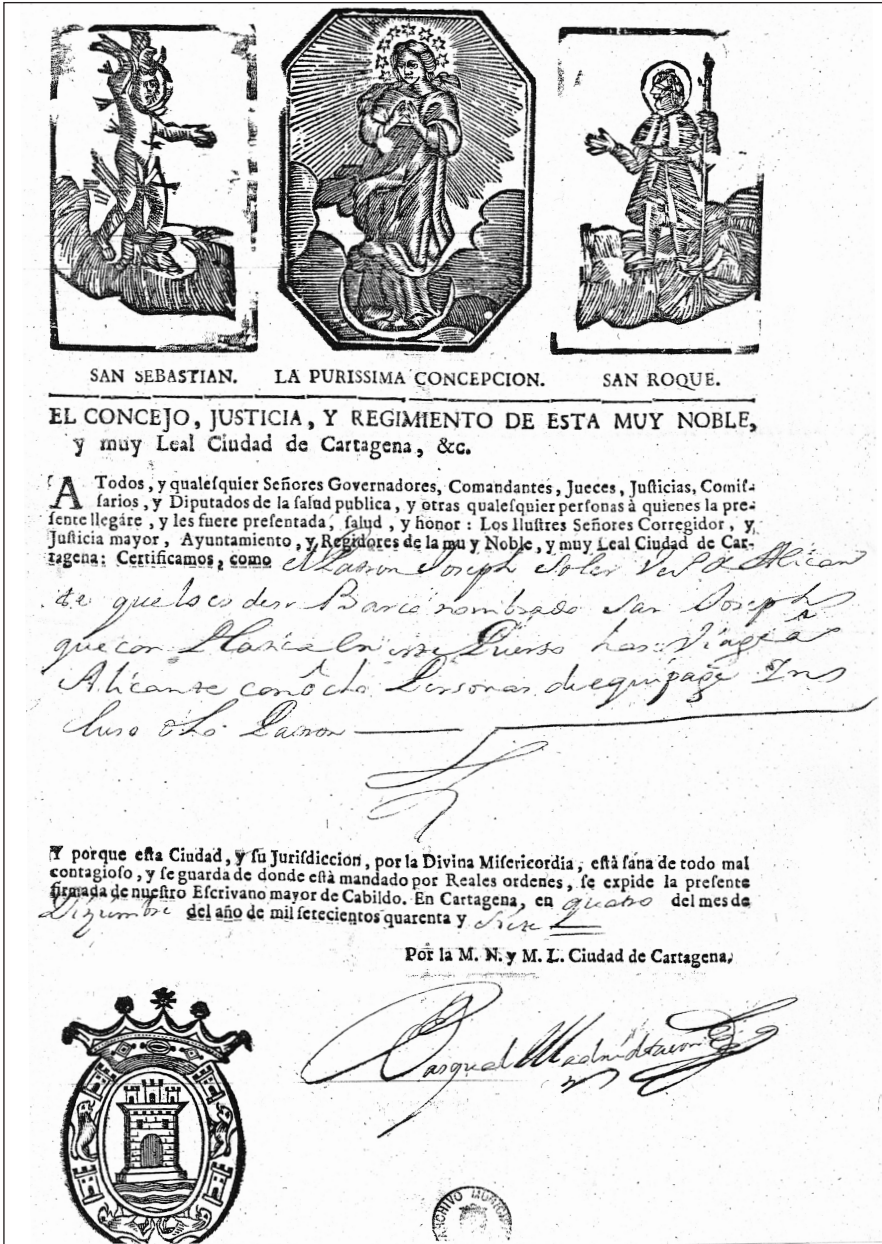 SAN SEBASTIAN. LA PURISSIMA CONCEPCION. SAN ROQUE.
EL CONCEJO, JUSTICIA, Y REGIMIENTO DE ESTA MUY NOBLE,
y muy Leal Ciudad de Cartagena, &c.
A Todos, y qualesquier Señores Governadores, Comandantes, Jueces, Justicias, Comis-
sarios, y Diputados de la salud publica, y otras qualesquier personas à quienes la pre-
sente llegáre, y les fuere presentada, salud, y honor: Los Ilustres Señores Corregidor, y
Justicia mayor, Ayuntamiento, y Regidores de la muy Noble, y muy Leal Ciudad de Car-
tagena: Certificamos, como el Patron Joseph Soler Alican
te que lo es de Barco nombrado San Joseph
que con en este Puerto
Alicante con ocho Personas de equipage Ins
cluso Patron
Y porque esta Ciudad, y su Jurisdiccion, por la Divina Misericordia, està sana de todo mal
contagioso, y se guarda de donde està mandado por Reales ordenes, se expide la presente
firmada de nuestro Escrivano mayor de Cabildo. En Cartagena, en quatro del mes de
Dizumbre del año de mil setecientos quarenta y siete
Por la M. N. y M. L. Ciudad de Cartagena,
Pasqual
ARCHIVO MUNICI